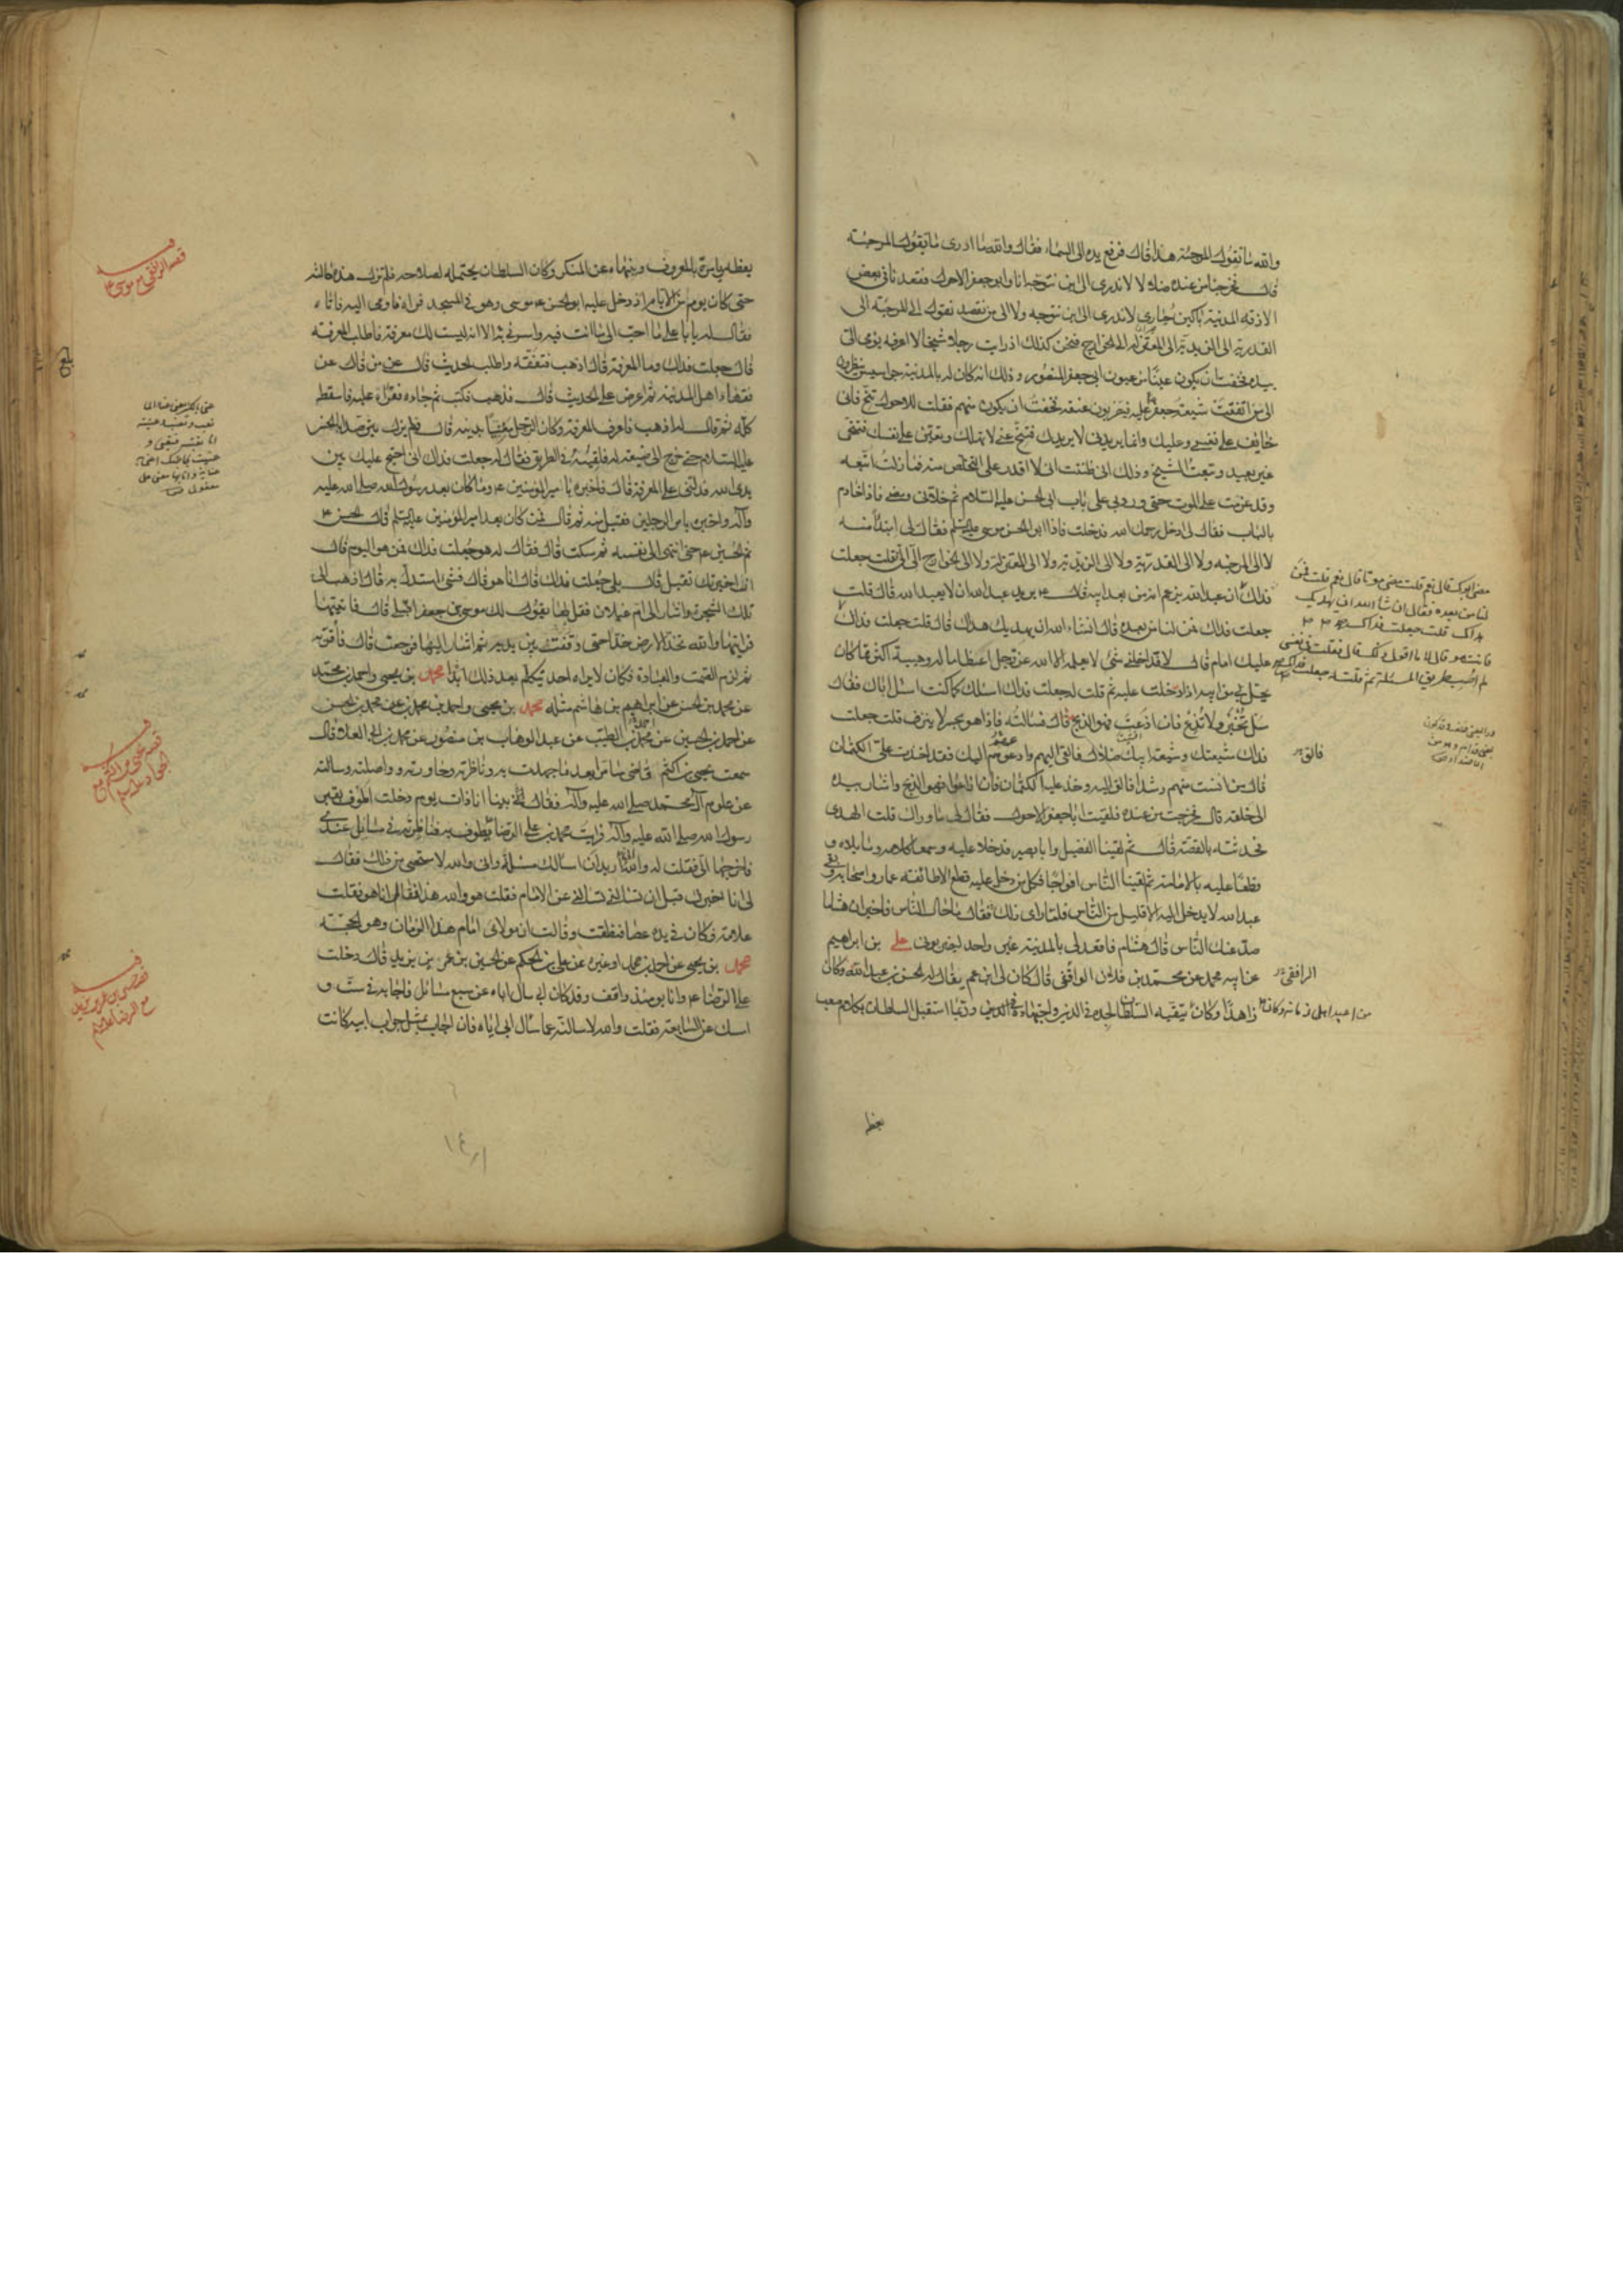 والله ما تقول المرجئة هذا قال فرفع يده الى السماء فقال والله ما ادرى ما تقول المرجئة
قال فخرجنا من عنده ضلالا لا ندرى الى اين نتوجه انا وابو جعفر الاحول فقعدنا فى بعض
الازقة المدينة باكين حيارى لا ندرى الى اين نتوجه ولا الى من نقصد نقول الى المرجئة الى
القدرية الى الزيدية الى المعتزلة الى الخوارج فنحن كذلك اذ رايت رجلا شيخا لا اعرفه يومى الى
بيده فخفت ان يكون عينا من عيون ابى جعفر المنصور وذلك انه كان له بالمدينة جواسيس ينظرون
الى من اتفقت شيعة جعفر عليه فيضربون عنقه فخفت ان يكون منهم فقلت للاحول تنح فانى
خايف على نفسى وعليك وانما يريدنى لا يريدك فتنح عنى لا تهلك وتعين على نفسك فتنحى
غير بعيد وتبعت الشيخ وذلك انى ظننت انى لا اقدر على التخلص منه فما زلت اتبعه
وقد عزمت على الموت حتى ورد بى على باب ابى الحسن عليه السلام ثم خلانى ومضى فاذا خادم
بالباب فقال لى ادخل رحمك الله فدخلت فاذا ابو الحسن موسى عليه السلم فقال لى ابتداء منه
لا الى المرجئة ولا الى القدرية ولا الى الزيدية ولا الى المعتزلة ولا الى الخوارج الى الى فقلت جعلت
فداك ان عبد الله يزعم انه من بعد ابيه قال يريد عبد الله ان لا يعبد الله قال قلت
جعلت فداك فمن لنا من بعده قال ان شاء الله ان يهديك هداك قال قلت جعلت فداك
عليك امام قال لا فداخلنى شىء لا يعلمه الا الله عز وجل اعظاما له وهيبة اكثر مما كان
يحل بى من ابيه اذا دخلت عليه ثم قلت له جعلت فداك اسالك كما كنت اسئل اباك فقال
سل تخبر ولا تذع فان اذعت فهو الذبح قال فسالته فاذا هو بحر لا ينزف قلت جعلت
فداك شيعتك وشيعة ابيك ضلال فالقى اليهم وادعوهم اليك فقد اخذت على الكتمان
قال من انست منهم رشدا فالق اليه وخذ عليه الكتمان فان اذاعوا فهو الذبح واشار بيده
الى حلقه قال فخرجت من عنده فلقيت ابا جعفر الاحول فقال لى ما وراك قلت الهدى
فحدثته بالقصة قال ثم لقينا الفضيل وابا بصير فدخلا عليه وسمعا كلامه وساءلاه و
قطعا عليه بالامامة ثم لقينا الناس افواجا فكل من دخل عليه قطع الا طائفة عمار واصحابه وبقى
عبد الله لا يدخل اليه الا قليل من الناس فلما راى ذلك قال ما حال الناس فاخبر ان هشاما
صد عنك الناس قال هشام فاقعد لى بالمدينة غير واحد ليضربونى على بن ابراهيم
عن ابيه عن محمد بن فلان الواقفى قال كان لى ابن عم يقال له الحسن بن عبد الله وكان
زاهدا وكان يتقيه السلطان لجده فى الدين واجتهاده وربما استقبل السلطان بكلام صعب
يعظ
مضى ابوك قال نعم قلت مضى موتا قال نعم قلت فمن
لنا من بعده فقال ان شاء الله ان يهديك
هداك قلت جعلت فداك
فانت هو قال لا ما اقول ذلك قال فقلت فى نفسى
لم اصب طريق المسئلة ثم قلت له جعلت فداك
فالق
الرافقى
من اعبد اهل زمانه وكان
يعظه ويامره بالمعروف وينهاه عن المنكر وكان السلطان يحتمله لصلاحه فلم تزل هذه حالته
حتى كان يوم من الايام اذ دخل عليه ابو الحسن موسى وهو فى المسجد فراه فاومى اليه فاتاه
فقال له يا با على ما احب الى ما انت فيه واسرنى به الا انه ليست لك معرفة فاطلب المعرفة
قال جعلت فداك وما المعرفة قال اذهب فتفقه واطلب الحديث قال عن من قال عن
فقهاء اهل المدينة ثم اعرض على الحديث قال فذهب فكتب ثم جاءه فقراه عليه فاسقطه
كله ثم قال له اذهب فاعرف المعرفة وكان الرجل معنيا بدينه قال فلم يزل يترصد ابا الحسن
عليه السلام حتى خرج الى ضيعة له فلقيه فى الطريق فقال له جعلت فداك انى احتج عليك بين
يدى الله فدلنى على المعرفة قال فاخبره بامير المؤمنين وما كان بعد رسول الله صلى الله عليه
وآله واخبره بامر الرجلين فقبل منه ثم قال فمن كان بعد امير المؤمنين عليه السلم قال الحسن
ثم الحسين حتى انتهى الى نفسه ثم سكت قال فقال له جعلت فداك فمن هو اليوم قال
ان اخبرتك تقبل قال بلى جعلت فداك قال انا هو قال فشىء استدل به قال اذهب الى
تلك الشجرة واشار الى ام غيلان فقل لها يقول لك موسى بن جعفر اقبلى قال فاتيتها
فرايتها والله تخد الارض خدا حتى وقفت بين يديه ثم اشار اليها فرجعت قال فاقر به
ثم لزم الصمت والعبادة فكان لا يراه احد يتكلم بعد ذلك ابدا محمد بن يحيى واحمد بن محمد
عن محمد بن الحسن عن ابراهيم بن هاشم مثله محمد بن يحيى واحمد بن محمد عن محمد بن الحسن
عن احمد بن الحسين عن محمد بن الطيب عن عبد الوهاب بن منصور عن محمد بن ابى العلاء قال
سمعت يحيى بن اكثم قاضى سامرا بعد ما جهدت به وناظرته وحاورته وواصلته وسالته
عن علوم آل محمد صلى الله عليه وآله فقال بينا انا ذات يوم دخلت اطوف بقبر
رسول الله صلى الله عليه وآله فرايت محمد بن على الرضا يطوف به فناظرته فى مسائل عندى
فاخرجها الى فقلت له والله انى اريد ان اسالك مسئلة وانى والله لاستحيى من ذلك فقال
لى انا اخبرك قبل ان تسالنى تسالنى عن الامام فقلت هو والله هذا فقال انا هو فقلت
علامة فكان فى يده عصا فنطقت وقالت ان مولاى امام هذا الزمان وهو الحجة
محمد بن يحيى عن احمد بن محمد او غيره عن على بن الحكم عن الحسين بن عمر بن يزيد قال دخلت
على الرضا وانا يومئذ واقف وقد كان ابى سال اباه عن سبع مسائل فاجابه فى ست و
امسك عن السابعة فقلت والله لاسالنه عما سال ابى اباه فان اجاب بمثل جواب ابيه كانت
بلغ